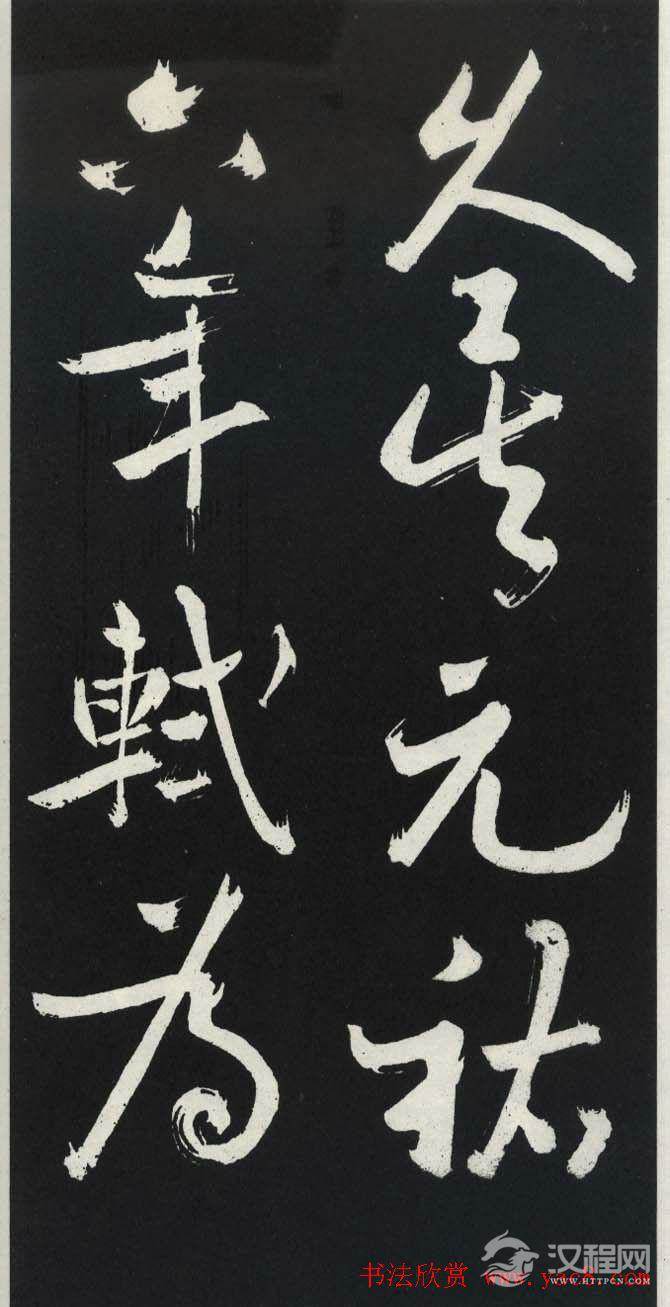 久矣元祐
六年軾為
汉程网
WWW.HTTPCN.COM
书法欣赏